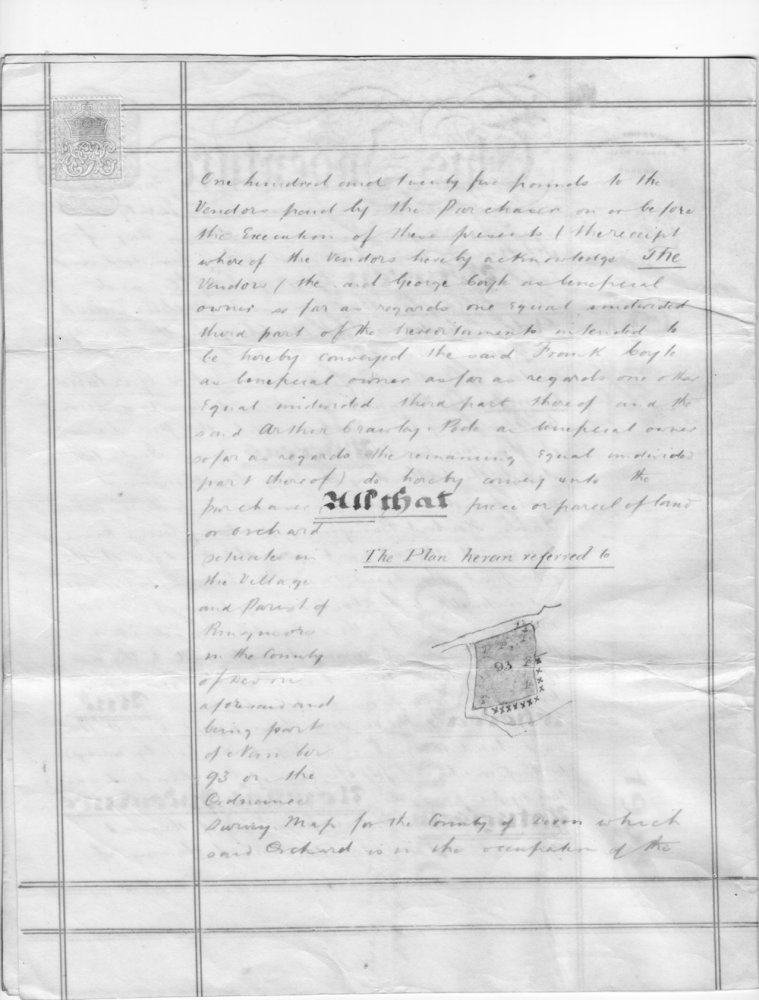 One hundred and twenty five pounds to the
Vendors paid by the Purchaser on or before
the Execution of these presents (the receipt
whereof the Vendors hereby acknowledge The
Vendors (the said George Coyte as beneficial
owner so far as regards one equal undivided
third part of the hereditaments intended to
be hereby conveyed the said Frank Coyte
as beneficial owner as far as regards one other
Equal undivided third part thereof and the
said Arthur Crawley Poole as beneficial owner
so far as regards the remaining Equal undivided
part thereof) do hereby convey unto the
purchaser All that piece or parcel of land
or orchard
situate in
the Village
and Parish of
Ringmore
in the County
of Devon
aforesaid and
being part
of Number
93 on the
Ordnance
Survey Map for the County of Devon which
said Orchard is in the occupation of the
The Plan herein referred to
93